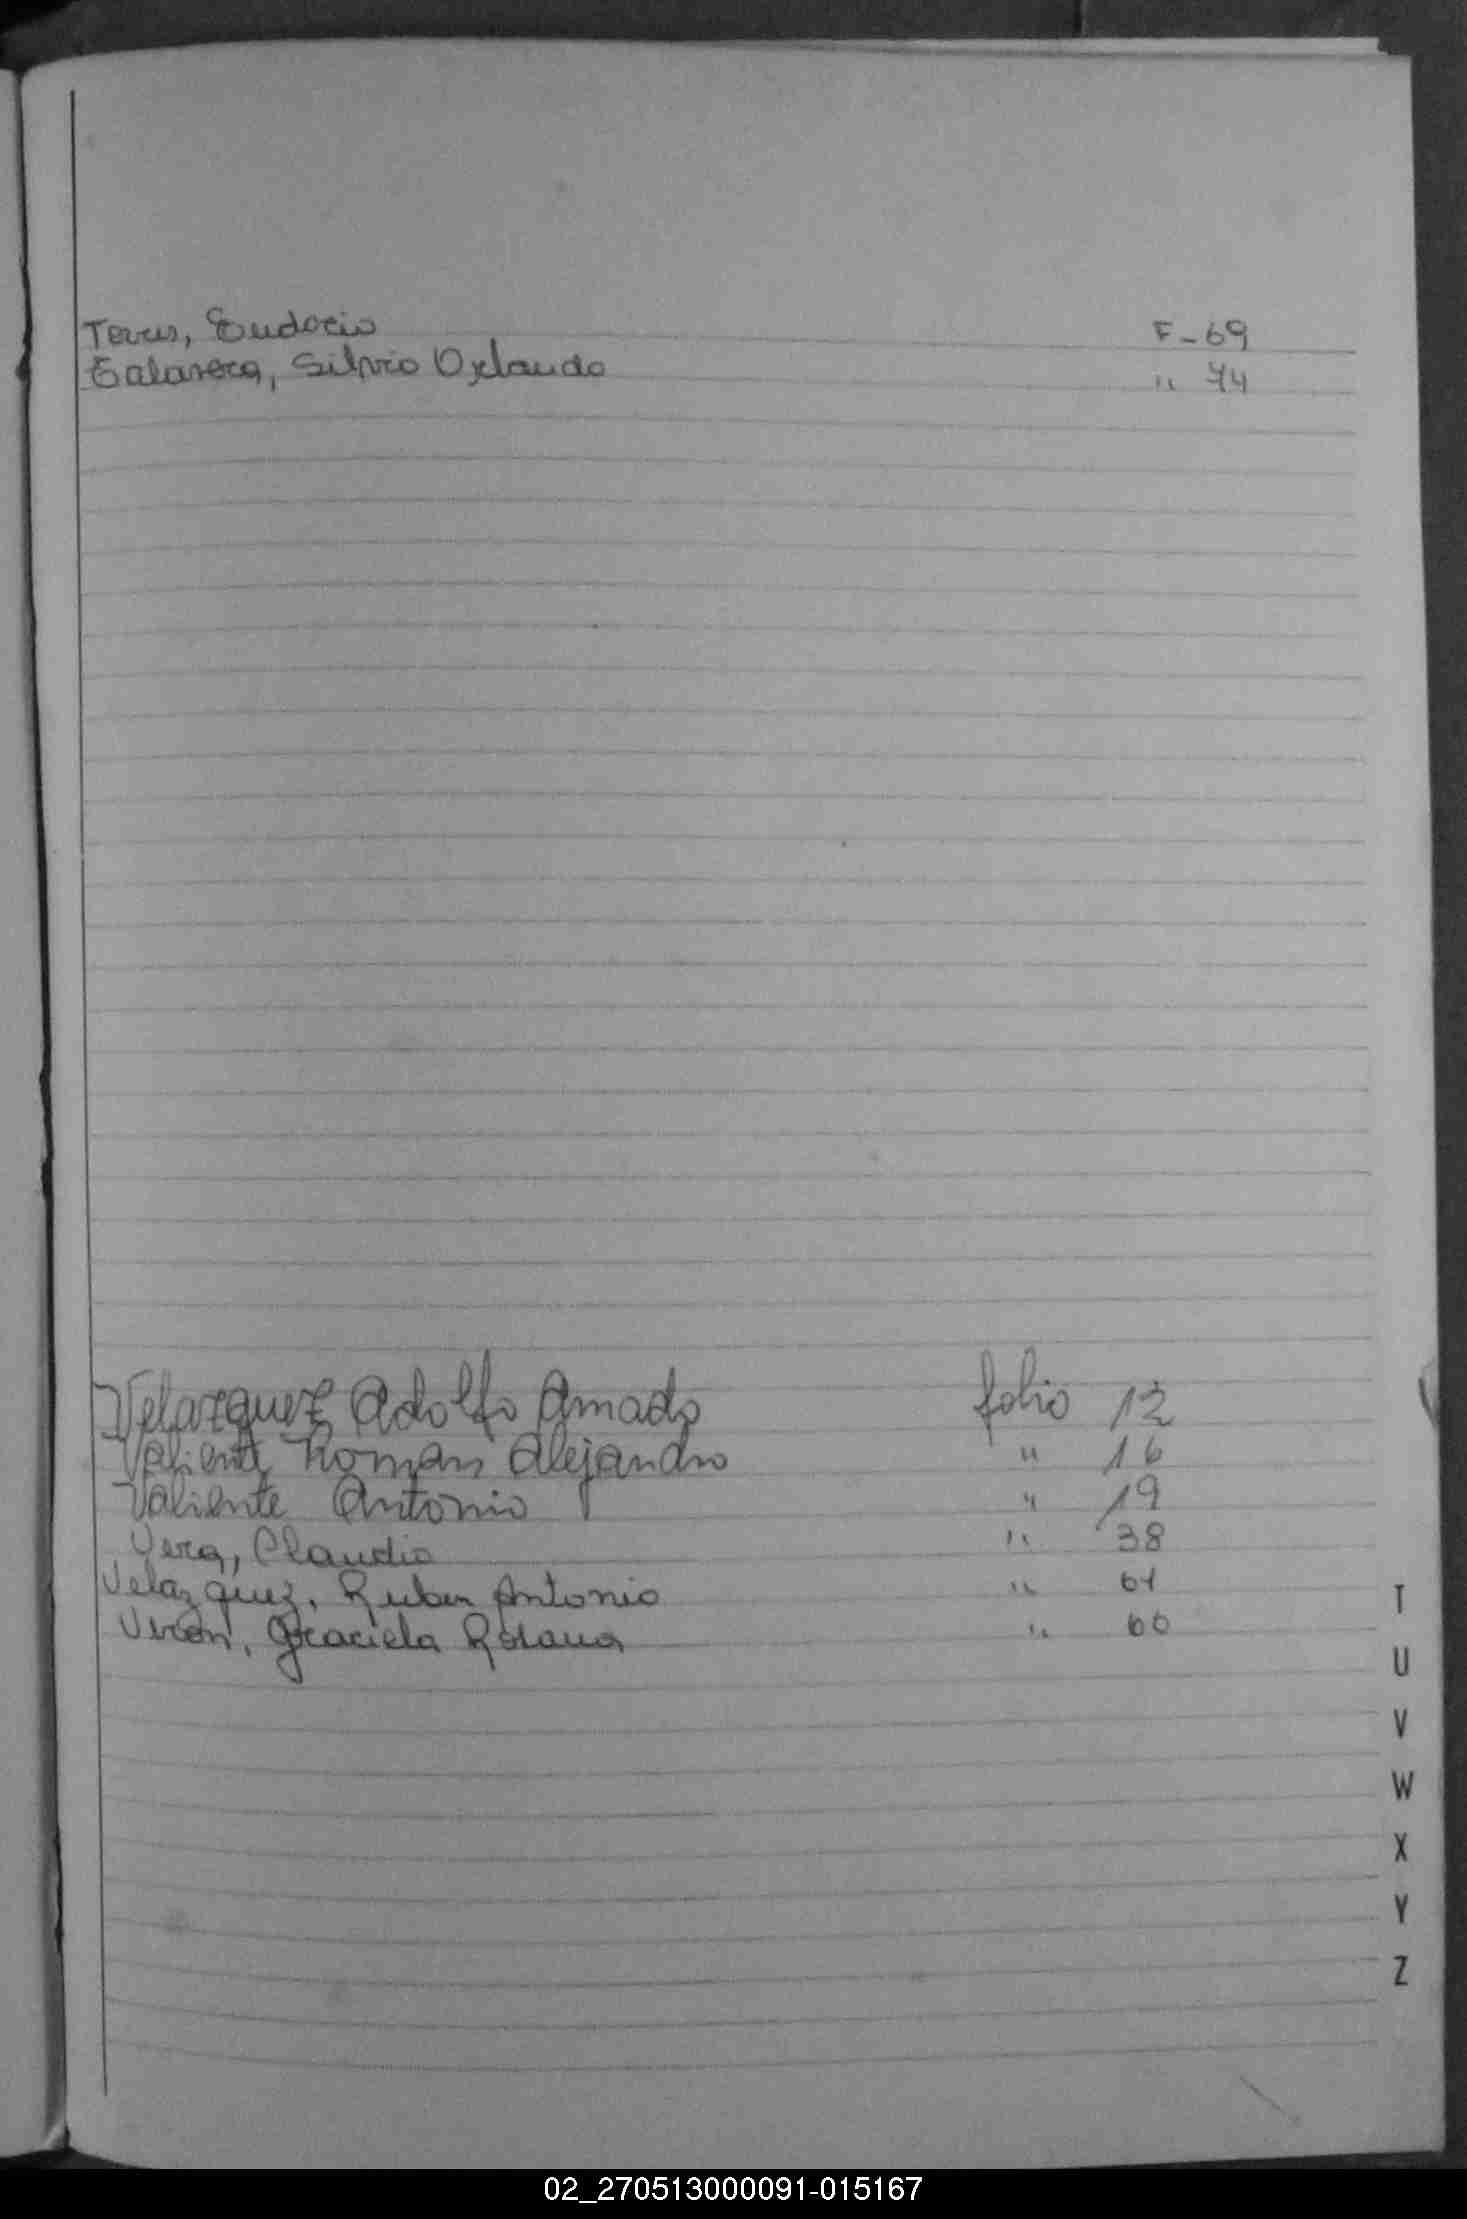 Torres, Eudocio F-69
Talavera, Silvio Orlando " 74
Velazquez Adolfo Amado folio 12
Valiente Roman Alejandro " 16
Valiente Antonio " 19
Vera, Claudio " 38
Velazquez, Ruben Antonio " 61
Veron, Graciela Rosana " 60
T
U
V
W
X
Y
Z
02_270513000091-015167